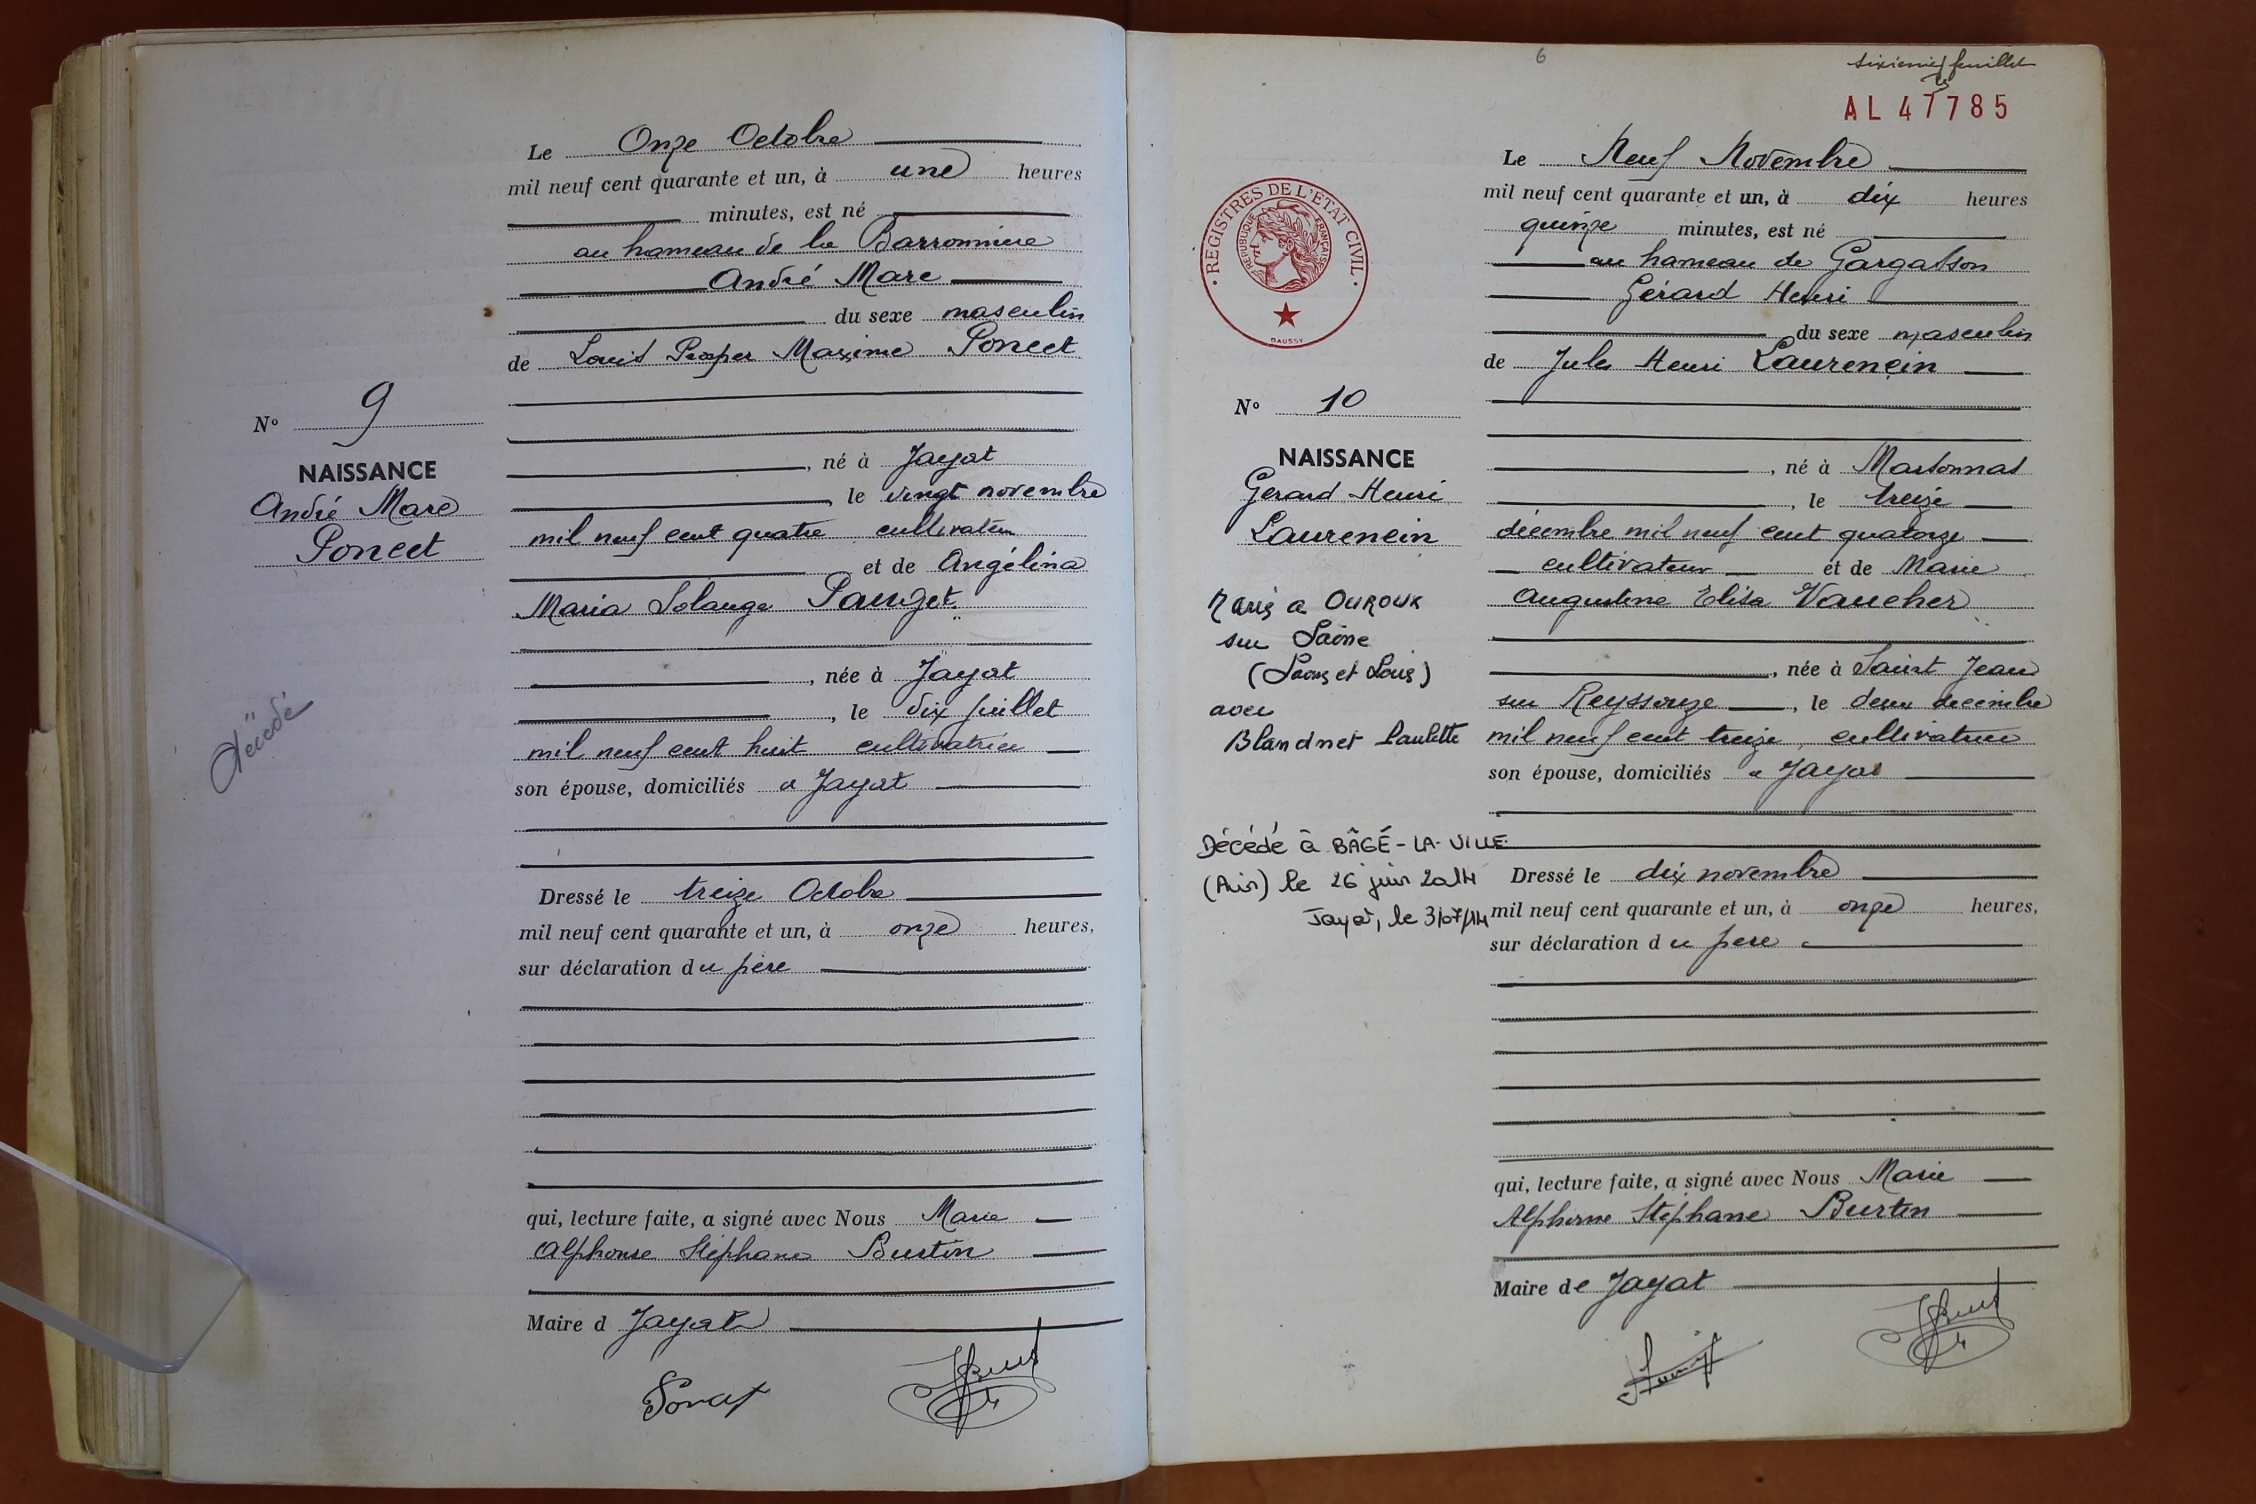 Le Onze Octobre
mil neuf cent quarante et un, à une heures
minutes, est né
au hameau de la Barronnière
André Marc
du sexe masculin
de Louis Prosper Maxime Poncet
né à Jayat
, le vingt novembre
mil neuf cent quatre cultivateur
et de Angélina
Maria Solange Pauget
, née à Jayat
, le dix juillet
mil neuf cent huit cultivatrice
son épouse, domiciliés à Jayat
Dressé le treize Octobre
mil neuf cent quarante et un, à onze heures,
sur déclaration du père
qui, lecture faite, a signé avec Nous Marie
Alphonse Stéphane Burtin
Maire d Jayat
Poncet
No 9
NAISSANCE
André Marc
Poncet
6
sixième feuillet
AL 47785
REGISTRES DE L'ETAT CIVIL
REPUBLIQUE FRANÇAISE
DAUSSY
Le Neuf Novembre
mil neuf cent quarante et un, à dix heures
quinze minutes, est né
au hameau de Gargasson
Gérard Henri
du sexe masculin
de Jules Henri Laurencin
, né à Marsonnas
, le treize
décembre mil neuf cent quatorze
cultivateur et de Marie
Augustine Elisa Vaucher
, née à Saint Jean
sur Reyssouze, le deux décembre
mil neuf cent treize, cultivatrice
son épouse, domiciliés à Jayat
Dressé le dix novembre
mil neuf cent quarante et un, à onze heures,
sur déclaration du père
qui, lecture faite, a signé avec Nous Marie
Alphonse Stéphane Burtin
Maire de Jayat
No 10
NAISSANCE
Gérard Henri
Laurencin
Marié à OUROUX
sur Saône
(Saône et Loire)
avec
Blandnet Paulette
Décédé à BÂGÉ-LA-VILLE
(Ain) le 26 juin 2014
Jayat, le 3/07/14